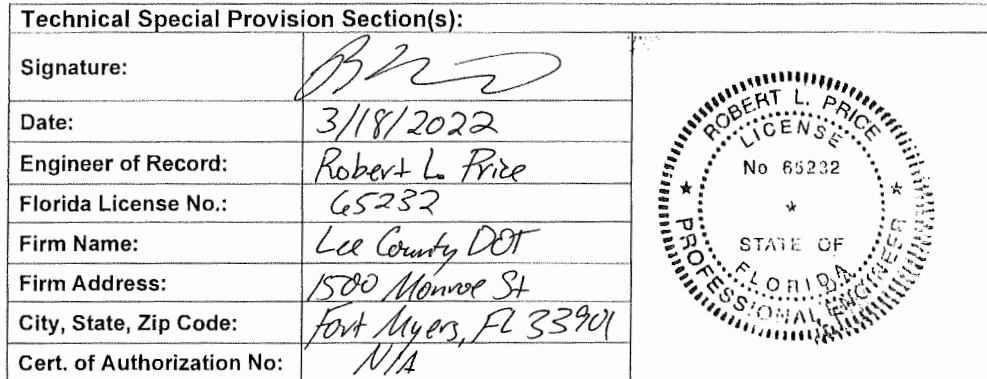 Technical Special Provision Section(s):
Signature:
Date: 3/18/2022
Engineer of Record: Robert L. Price
Florida License No.: 65232
Firm Name: Lee County DOT
Firm Address: 1500 Monroe St
City, State, Zip Code: Fort Myers, FL 33901
Cert. of Authorization No: N/A
ROBERT L. PRICE
LICENSE
No 65232
*
STATE OF
FLORIDA
* PROFESSIONAL ENGINEER *